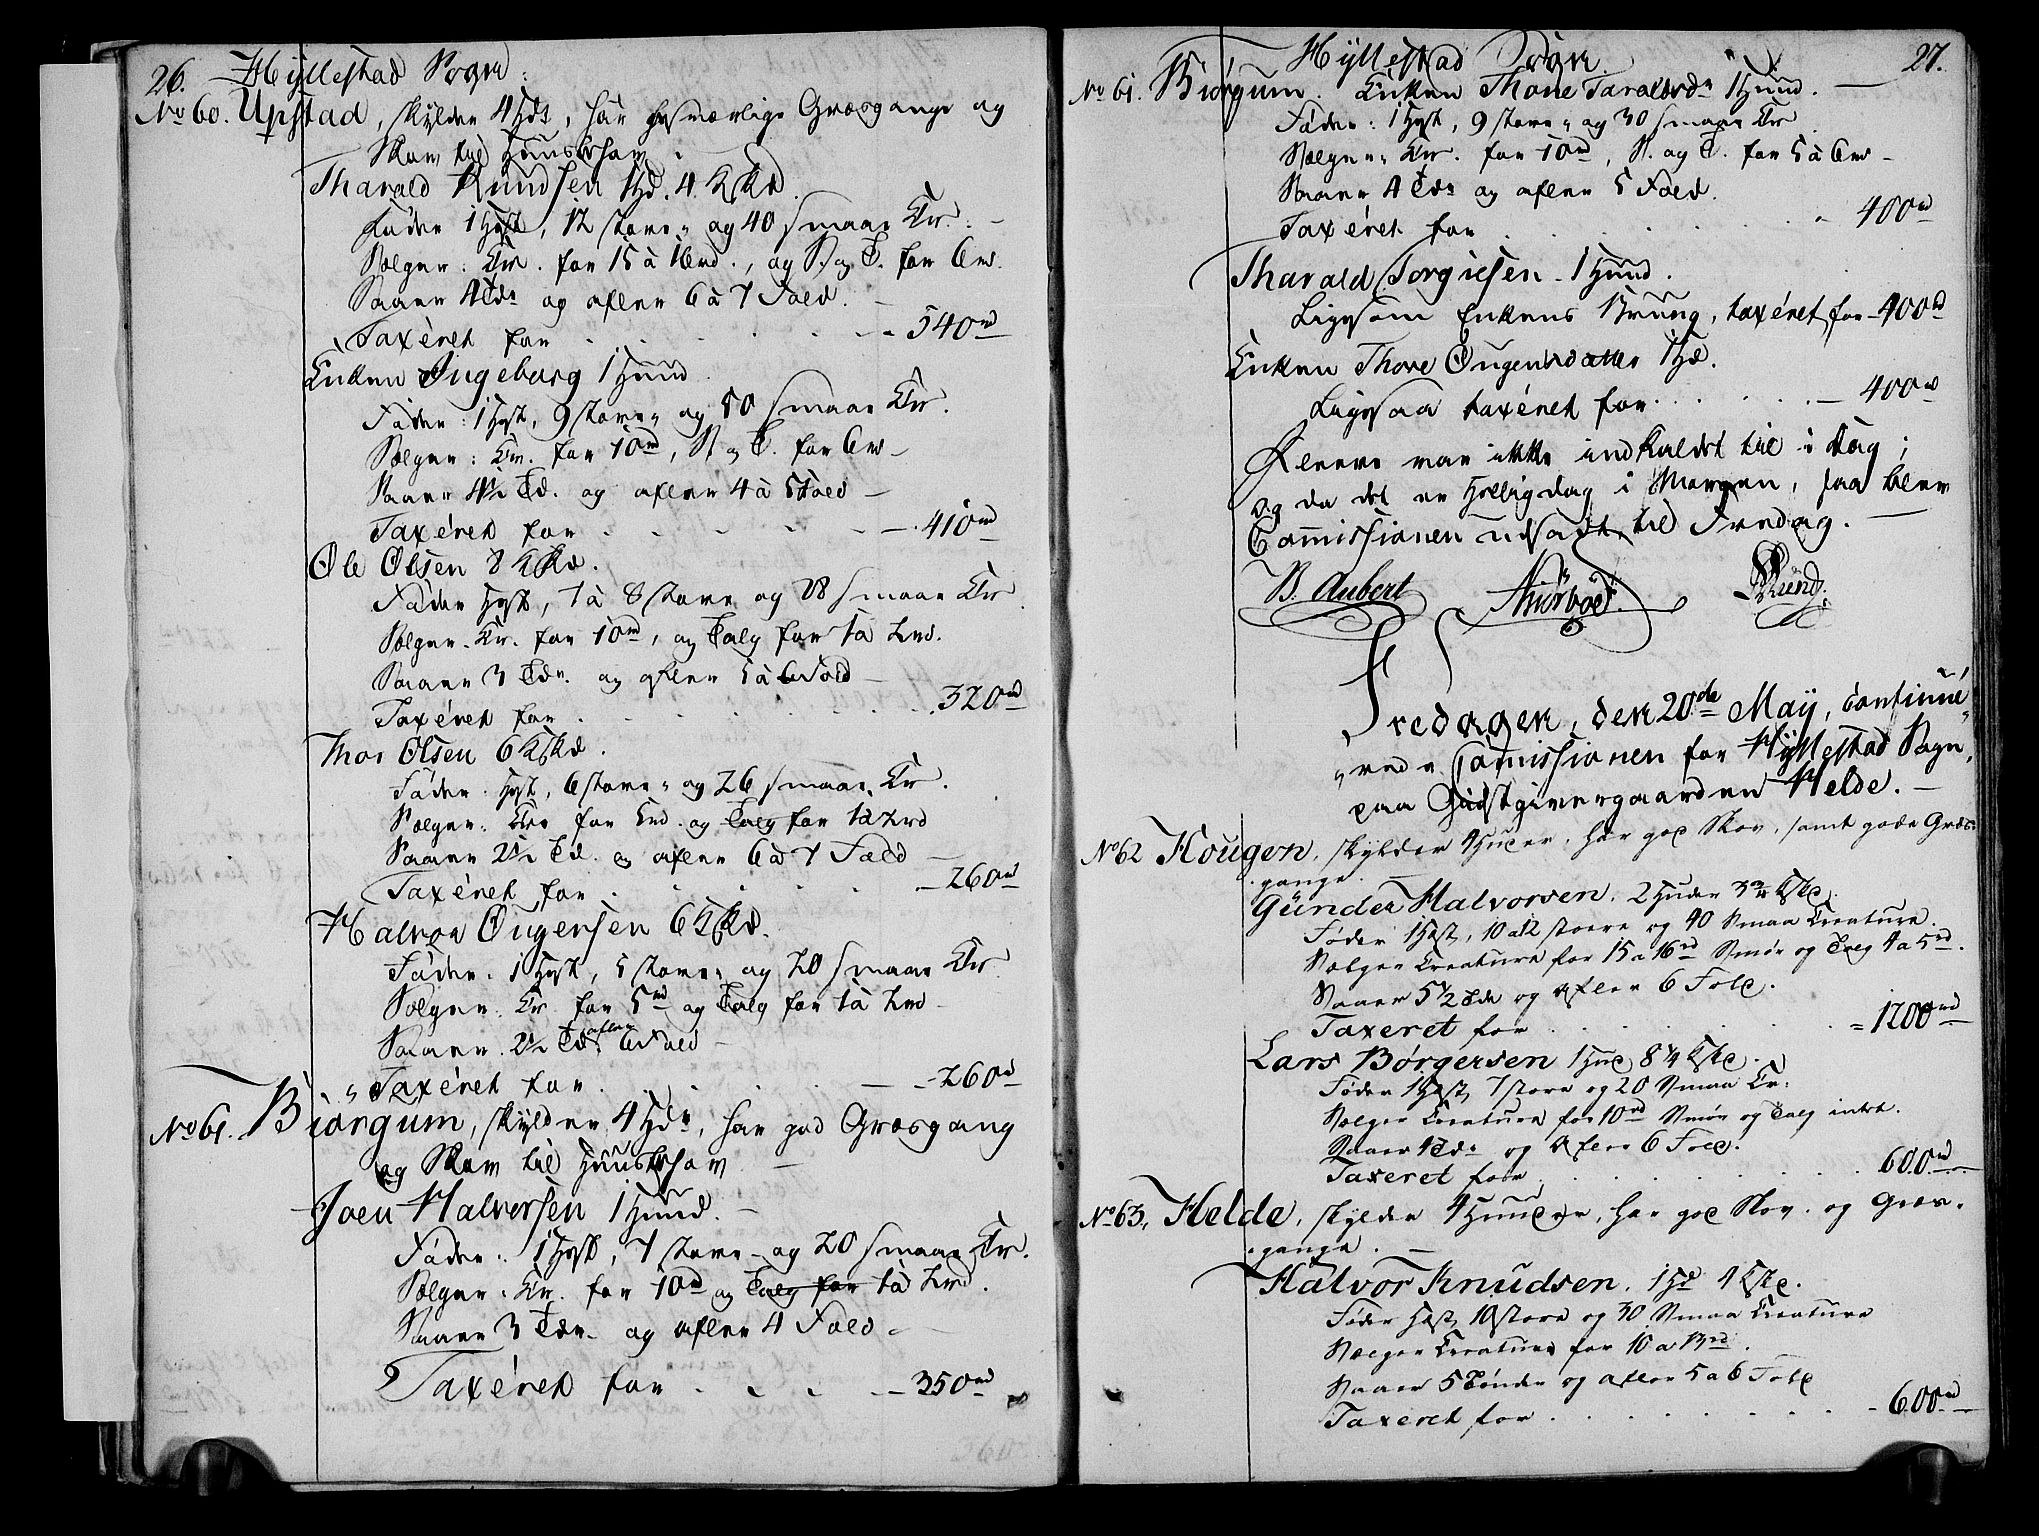 26. Hyllestad Sogn.
No 60. Upstad, skylder 4 Hdr, har besværlige Græsgange og
Skov til Huusbehov.
Tharald Knudsen 1 Hd. 4 Kskd.
Føder 1 Hest, 12 store, og 40 smaae Kr.
Sælger: Kr. for 15 à 16 rd., og S. og T. for 6 rd.
Saaer 4 Tdr og avler 6 à 7 Fold.
Taxéret for . . . . . 540 rd
Enken Ingeborg 1 Huud
Føder: 1 Hest, 9 store, og 50 smaae Kr.
Sælger: Kr. for 10 rd, S. og T. for 6 rd
Saaer 4½ Td. og avler 4 à 5 Fold
Taxéret for . . . . . 410 rd
Ole Olsen 8 Kskd.
Føder Hest, 7 à 8 store og 28 smaae Kr
Sælger. Kr. for 10 rd, og Talg for 1 à 2 rd.
Saaer 3 Tdr. og avler 5 à 6 Fold
Taxéret for . . . . . 320 rd
Thor Olsen 6 Kskd.
Føder. Hest, 6 store, og 26 smaae Kr.
Sælger. Kr for 5 rd. og Talg for 1 à 2 rd
Saaer 2½ Td. og avler 6 à 7 Fold
Taxéret for . . . . . 260 rd
Halvor Ougensen 6 Kskd.
Føder. 1 Hest, 5 store, og 20 smaae Kr
Sælger. Kr for 5 rd og Talg for 1 à 2 rd
Saaer. 2½ Td. avler 6 Fold
Taxéret for . . . . . 260 rd
No 61. Biørgum, skylder 4 Hdr, har god Græsgang
og Skov til Huusbehov
Joen Halvorsen 1 Huud.
Føder: 1 Hest, 7 store og 20 smaae Kr.
Sælger. Kr. for 10 rd og Talg for 1 à 2 rd.
Saaer 3 Tdr. og avler 4 Fold
Taxéret for . . . . 350 rd
Hyllestad Sogn. 27.
No 61. Biørgum. Enken Thone Taraldsdr 1 Huud.
Føder: 1 Hest, 9 store, og 30 smaae Kr
Sælger: Kr. for 10 rd, S. og T. for 5 à 6 rd
Saaer 4 Tdr og avler 5 Fold.
Taxéret for . . . . . 400 rd
Tharald Torgiesen 1 Huud.
Ligesom Enkens Brug, taxéret for 400 rd
Enken Thore Ougensdatter 1 Hd.
Ligesaa taxéret for . . . . . 400 rd
Fleere var ikke indkaldet til i Dag;
og da det er Helligdag i Morgen, saa blev
Commissionen udsadt til Fredag.
B. Aubert
Fredagen, den 20de May, continue-
rede Commissionen for Hyllestad Sogn,
paa Giæstgivergaarden Helde.
No 62 Hougen, skylder 4 Huder, har god Skov, samt gode Græs-
gange.
Gunder Halvorsen. 2 Huder 3¾ Kskd.
Føder 1 Hest, 10 a 12 store og 40 Smaa Creature.
Sælger Creature for 15 a 16 rd Smør og Talg 4 a 5 rd.
Saaer 5½ Tdr og avler 6 Fold.
Taxeret for . . . . . 1200 rd
Lars Børgersen 1 Hud 8¼ Kskd.
Føder 1 Hest, 7 store og 20 Smaa Kr.
Sælger Creature for 10 rd Smør og Talg intet.
Saaer 4 Tdr og avler 6 Fold.
Taxeret for . . . . . 600 rd
No 63, Helde, skylder 4 Huuder, har god Skov og Græs-
gange.
Halvor Knudsen. 1 Hd 4 Kskd.
Føder Hest, 10 store og 30 Smaa Creature
Sælger Creature for 10 a
Saaer 5 Tønder og avler 5 a 6 Fold
Taxeret for . . . . . 600 rd